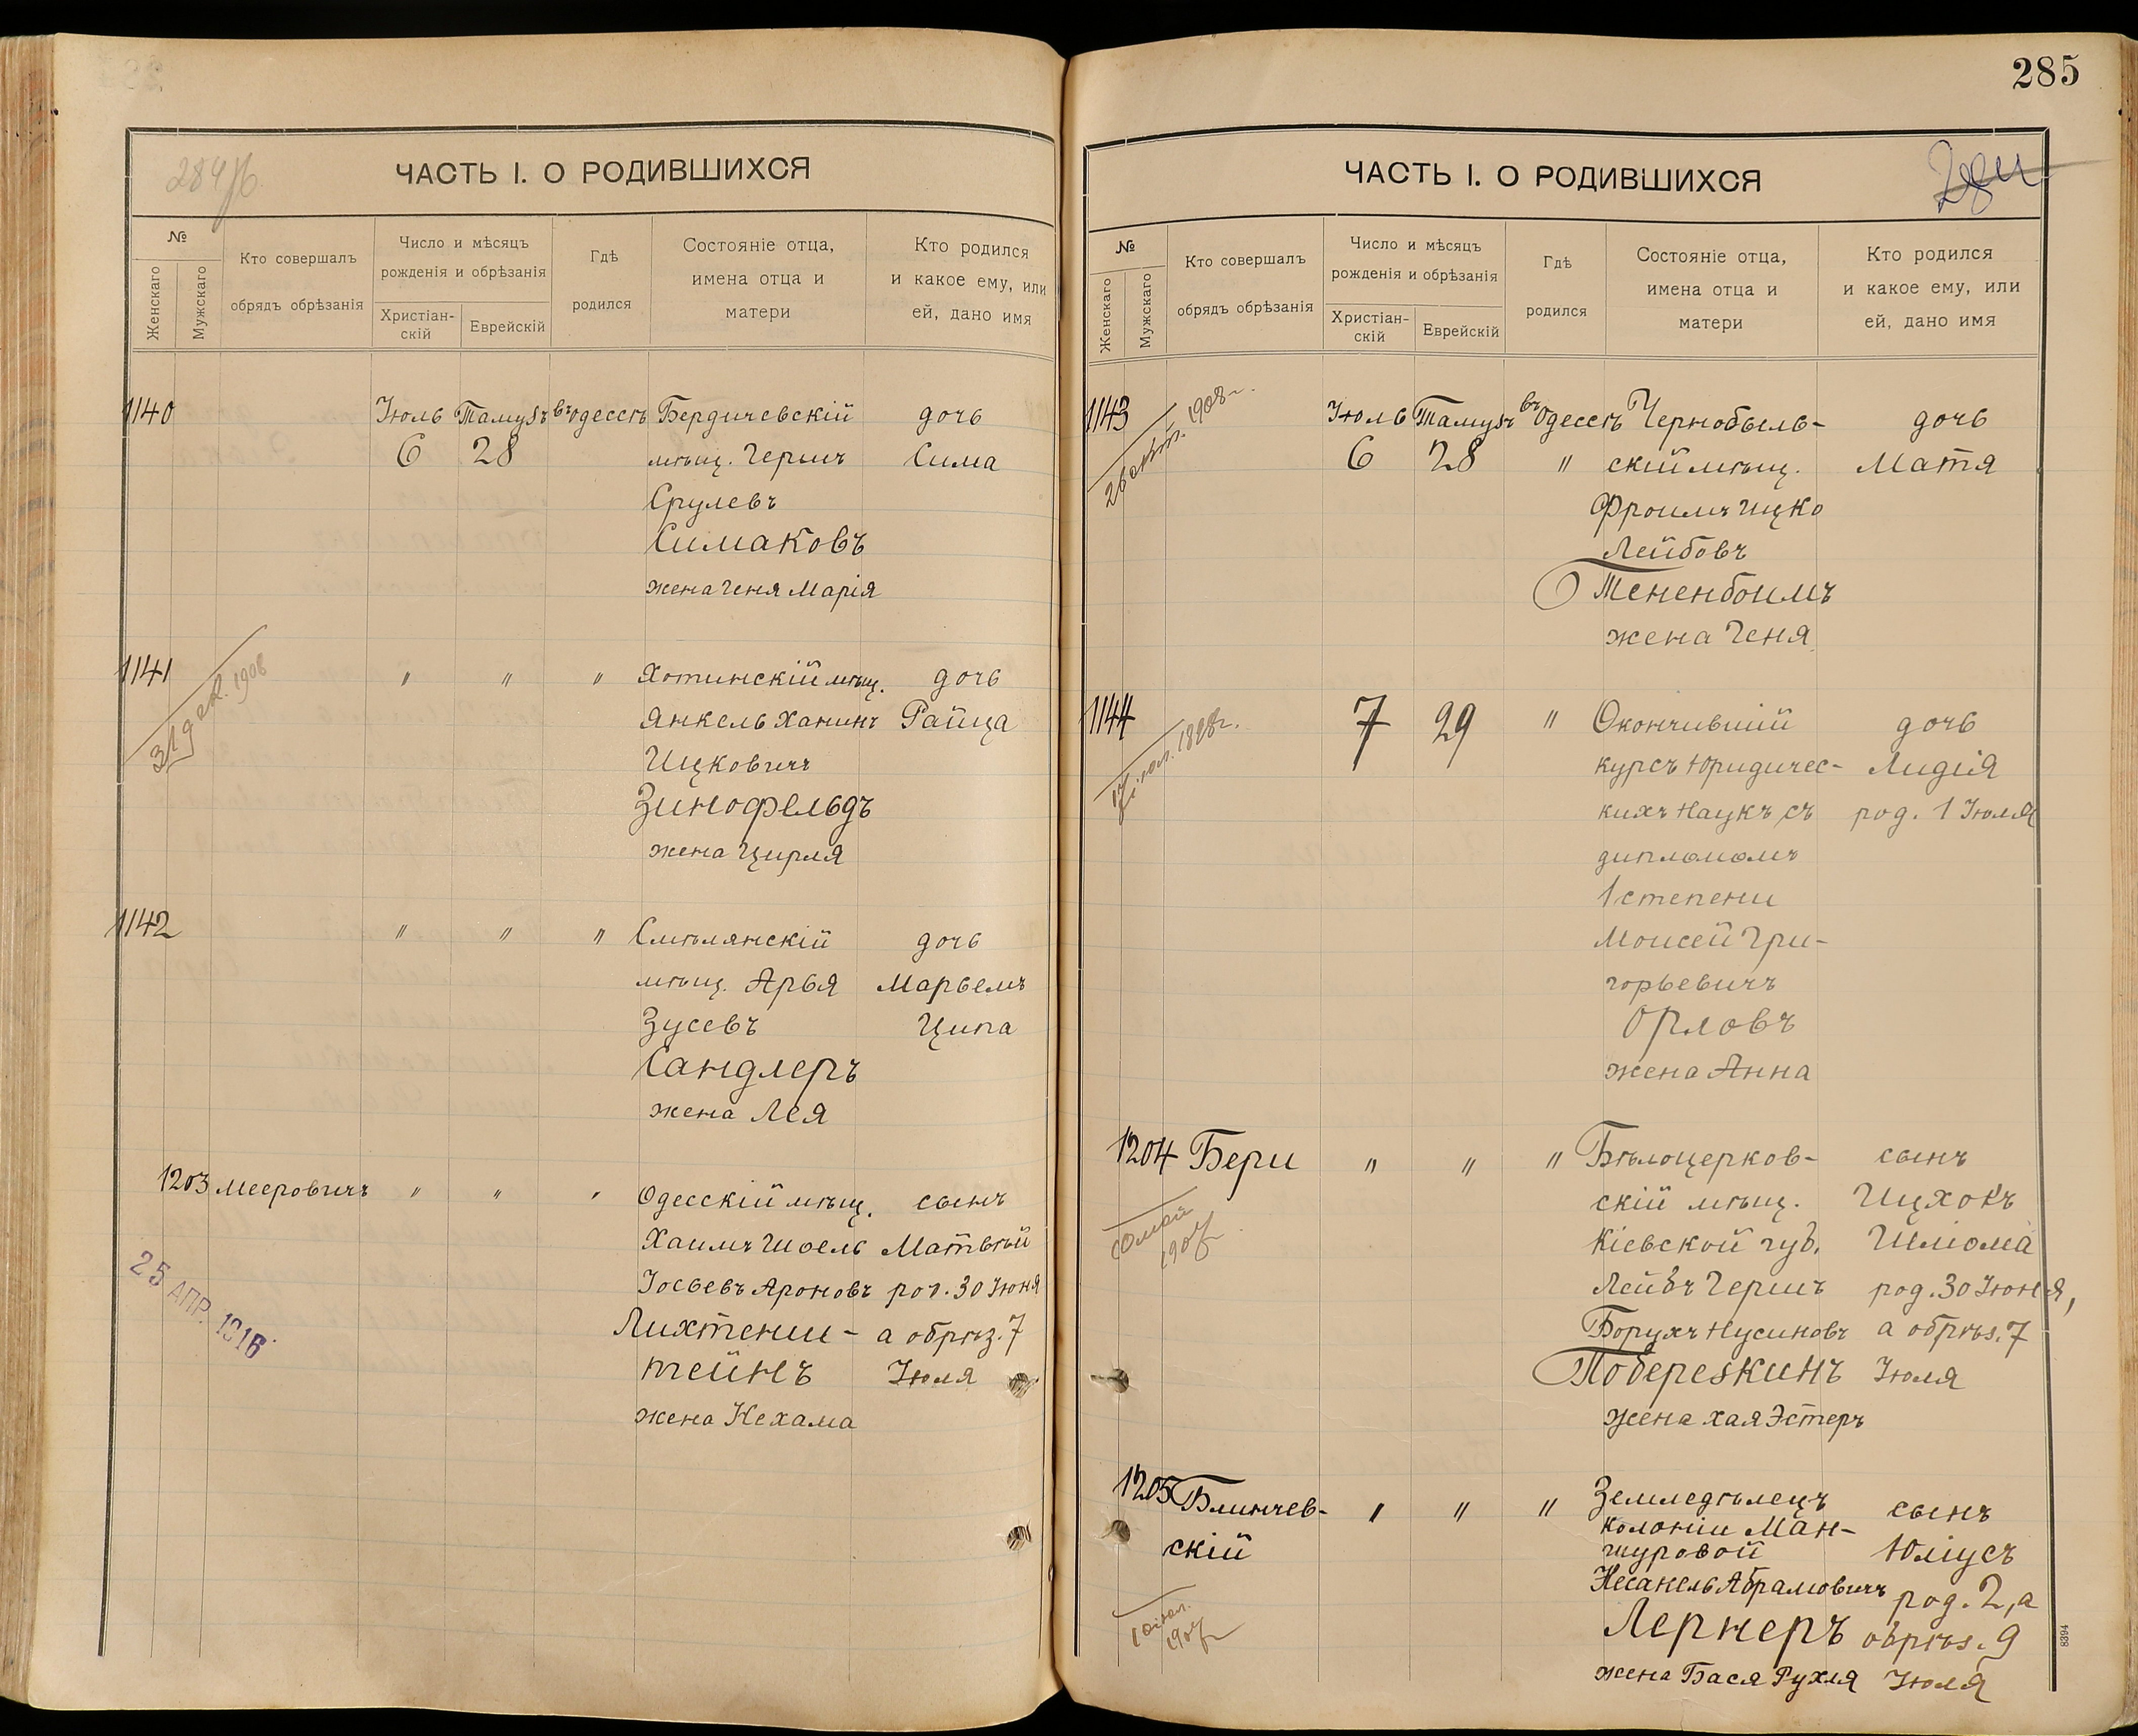 284 об.
ЧАСТЬ I. О РОДИВШИХСЯ
№
Женскаго
Мужскаго
Кто совершалъ
обрядъ обрѣзанія
Число и мѣсяцъ
рожденія и обрѣзанія
Христіан-
скій
Еврейскій
Гдѣ
родился
Состояніе отца,
имена отца и
матери
Кто родился
и какое ему, или
ей, дано имя
1140 Іюль Тамузъ въ Одессѣ Бердичевскій дочь
6 28 мѣщ. Гершъ Сима
Срулевъ
Симаковъ
жена Геня Марія
1141 " " " Хотинскій мѣщ. дочь
31 дек. 1908
Янкель Ханинъ Райца
Ицковичъ
Зинофельдъ
жена Цирля
1142 " " " Смѣлянскій дочь
мѣщ. Арья Марьемъ
Зусевъ Ципа
Сандлеръ
жена Лея
1203 Мееровичъ " " " Одесскій мѣщ. сынъ
Хаимъ Шоель Матвѣй
Іосьевъ Ароновъ род. 30 Іюня
Лихтенш- а обрѣз. 7
тейнъ Іюля
жена Нехама
25 АПР. 1916
285
ЧАСТЬ I. О РОДИВШИХСЯ
284
№
Женскаго
Мужскаго
Кто совершалъ
обрядъ обрѣзанія
Число и мѣсяцъ
рожденія и обрѣзанія
Христіан-
скій
Еврейскій
Гдѣ
родился
Состояніе отца,
имена отца и
матери
Кто родился
и какое ему, или
ей, дано имя
1143 Іюль Тамузъ въ Одессѣ Чернобыль- дочь
26 окт. 1908 г.
6 28 " скій мѣщ. Матя
Фроимъ Ицко
Лейбовъ
Тененбоимъ
жена Геня
1144 7 29 " Окончившій дочь
курсъ Юридичес- Лидія
кихъ Наукъ съ род. 1 Іюля
дипломомъ
1 степени
Моисей Гри-
горьевичъ
Орловъ
жена Анна
1204 Бери " " " Бѣлоцерков- сынъ
скій мѣщ. Ицхокъ
Кіевской губ. Шліома
Лейбъ Гершъ род. 30 Іюня,
Борухъ Нусиновъ а обрѣз. 7
Поберезкинъ Іюля
жена Хая Эстеръ
1205 Блинчев- " " " Земледѣлецъ сынъ
скій
колоніи Ман-
журовой Юліусъ
Несанель Абрамовичъ род. 2, а
Лернеръ обрѣз. 9
жена Бася Рухля Іюля
8394